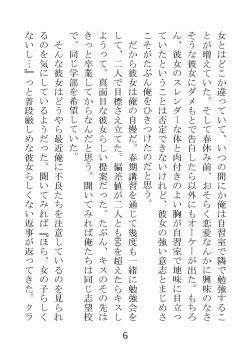 女とはどこか違っていて、いつの間にか俺は自習室で隣で勉強するこ
とが増えていた。そして春休み前、おそらく恋愛なんかに興味のなさ
そうな彼女にダメもとで告白したら以外にもオーケーが出た。もちろ
ん、彼女のスレンダーな体と肉付きのよい胸が自習室で地味に目立っ
ていたということは否定できないけれど、彼女の強い意志とまじめさ
こそがたぶん俺をひきつけたのだと思う。
だから彼女は俺の自慢だ。春期講習を通じて幾度も一緒に勉強会を
して、二人で目標さえ立てた。偏差値が二人とも60を超えたらキスし
ようって、真面目な彼女らしい提案だった。たぶん、キスのその先は
きっと卒業してからなんだと思う。聞いてみれば俺たちは同じ志望校
で、同じ学部を希望していた。
そんな彼女はどうやら最近俺に不良たちを注意しているのを見られ
るのを気にしているようだった。聞いてみれば『ほら、女の子らしく
ないし…』っと普段厳しめな彼女らしくない返事が返ってきた。クラ
6